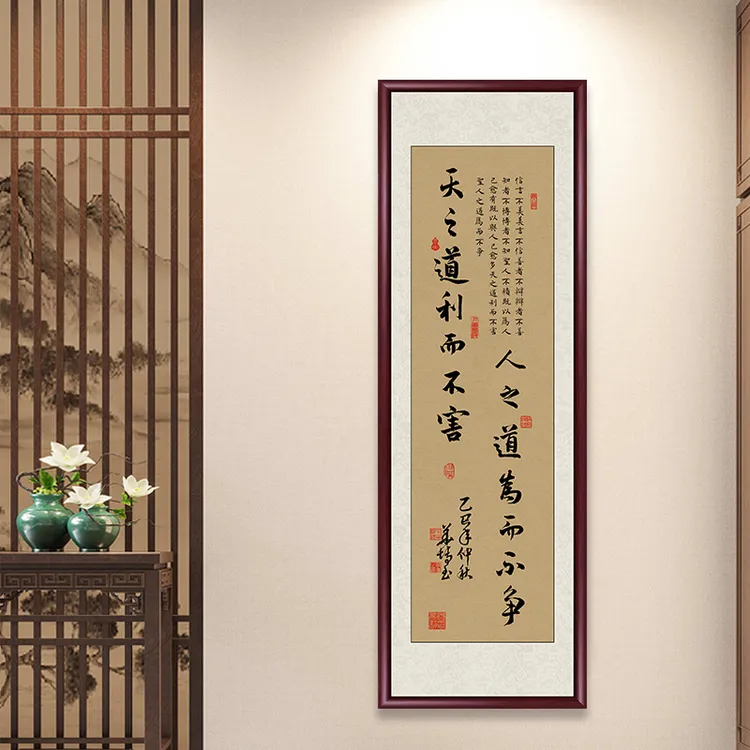 信言不美美言不信善者不辯辯者不善
知者不博博者不知聖人不積既以為人
己愈有既以與人己愈多天之道利而不害
聖人之道為而不争
天之道利而不害
人之道為而不争
乙巳年仲秋